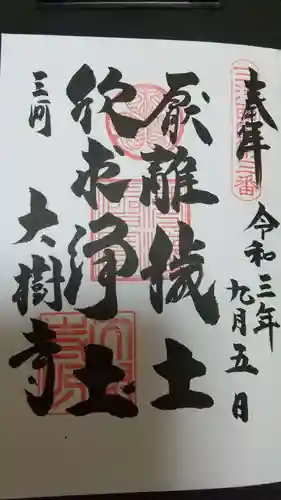 奉拝
令和三年
九月五日
厭離穢土
欣求浄土
三河
大樹寺